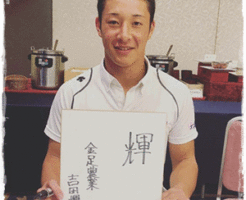 輝
金足農業
吉田輝